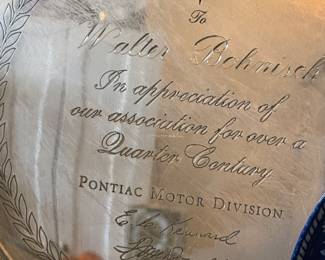 To
Walter Bohnisch
In appreciation of
our association for over a
Quarter Century
PONTIAC MOTOR DIVISION
E. R.